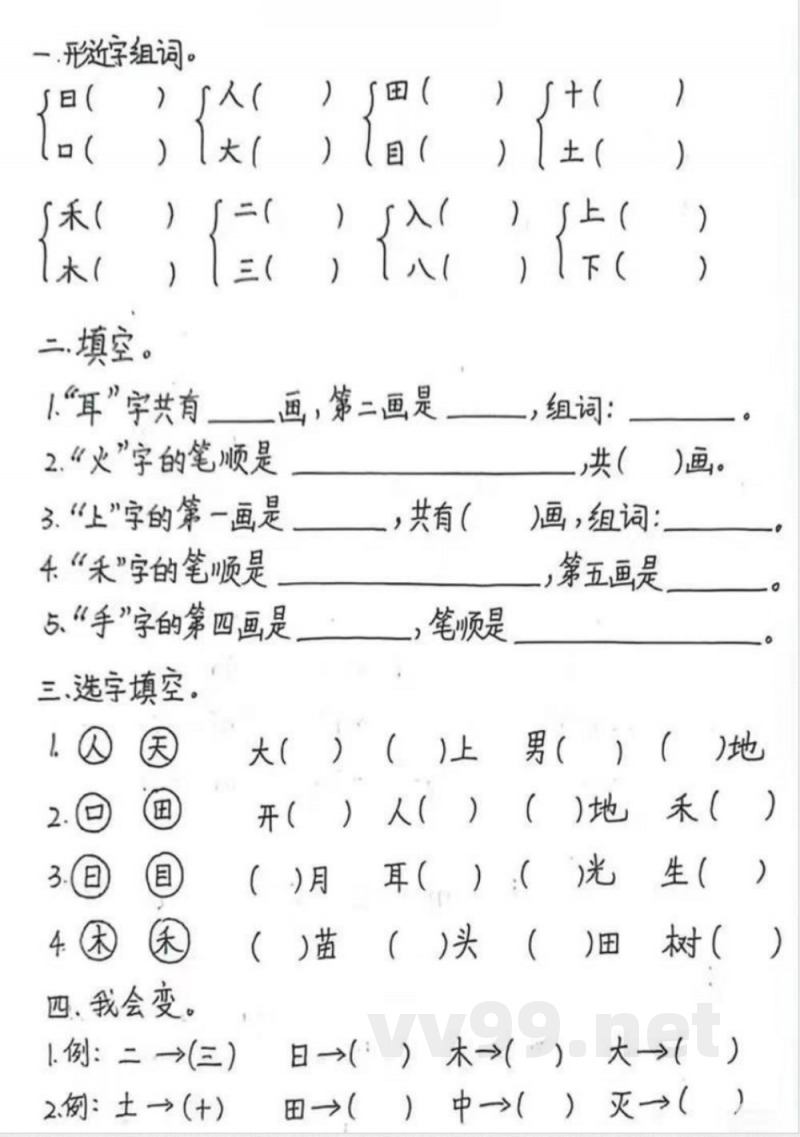 一.形近字组词。
日( ) 人( ) 田( ) 十( )
口( ) 大( ) 目( ) 土( )
禾( ) 二( ) 入( ) 上( )
木( ) 三( ) 八( ) 下( )
二.填空。
1.“耳”字共有____画,第二画是____,组词:____。
2.“火”字的笔顺是____,共( )画。
3.“上”字的第一画是____,共有( )画,组词:____。
4.“禾”字的笔顺是____,第五画是____。
5.“手”字的第四画是____,笔顺是____。
三.选字填空。
1. 人 天 大( ) ( )上 男( ) ( )地
2. 口 田 开( ) 人( ) ( )地 禾( )
3. 日 目 ( )月 耳( ) ( )光 生( )
4. 木 禾 ( )苗 ( )头 ( )田 树( )
四.我会变。
1.例: 二→(三) 日→( ) 木→( ) 大→( )
2.例: 土→(十) 田→( ) 中→( ) 灭→( )
vv99.net